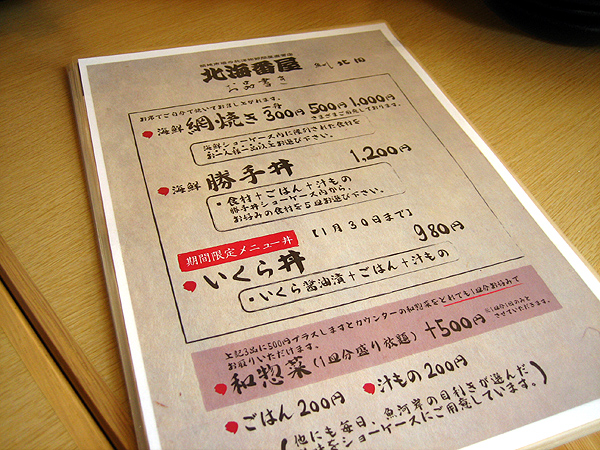 北海番屋
お品書き
お席でご自分で焼いてお召し上がれます。
海鮮 網焼き 一皿 300円 500円 1,000円
さまざまご用意しております。
海鮮ショーケース内に陳列された食材を
お一人様一品以上お選び下さい。
海鮮 勝手丼 1,200円
・食材+ごはん+汁もの
勝手丼ショーケース内から、
お好みの食材を5皿お選び下さい。
期間限定メニュー丼 【1月30日まで】
いくら丼 980円
・いくら醤油漬+ごはん+汁もの
上記3品に500円プラスしますとカウンターの和惣菜をどれでも1皿分お好みで
お取りいただけます。
和惣菜(1皿分盛り放題) +500円
※1皿分1回のみと
させていただきます。
ごはん 200円 汁もの 200円
(他にも毎日、魚河岸の目利きが選んだ
をショーケースにご用意しています。)